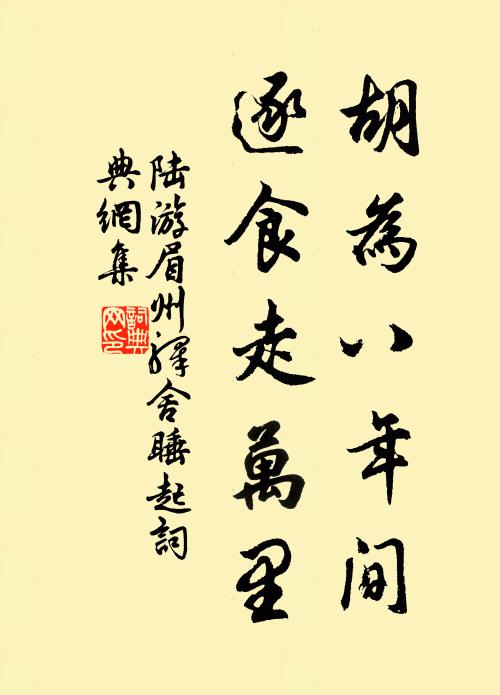 胡為八年间
逐食走萬里
陆游眉州驿舍睡起詞
典網集
詞典网印